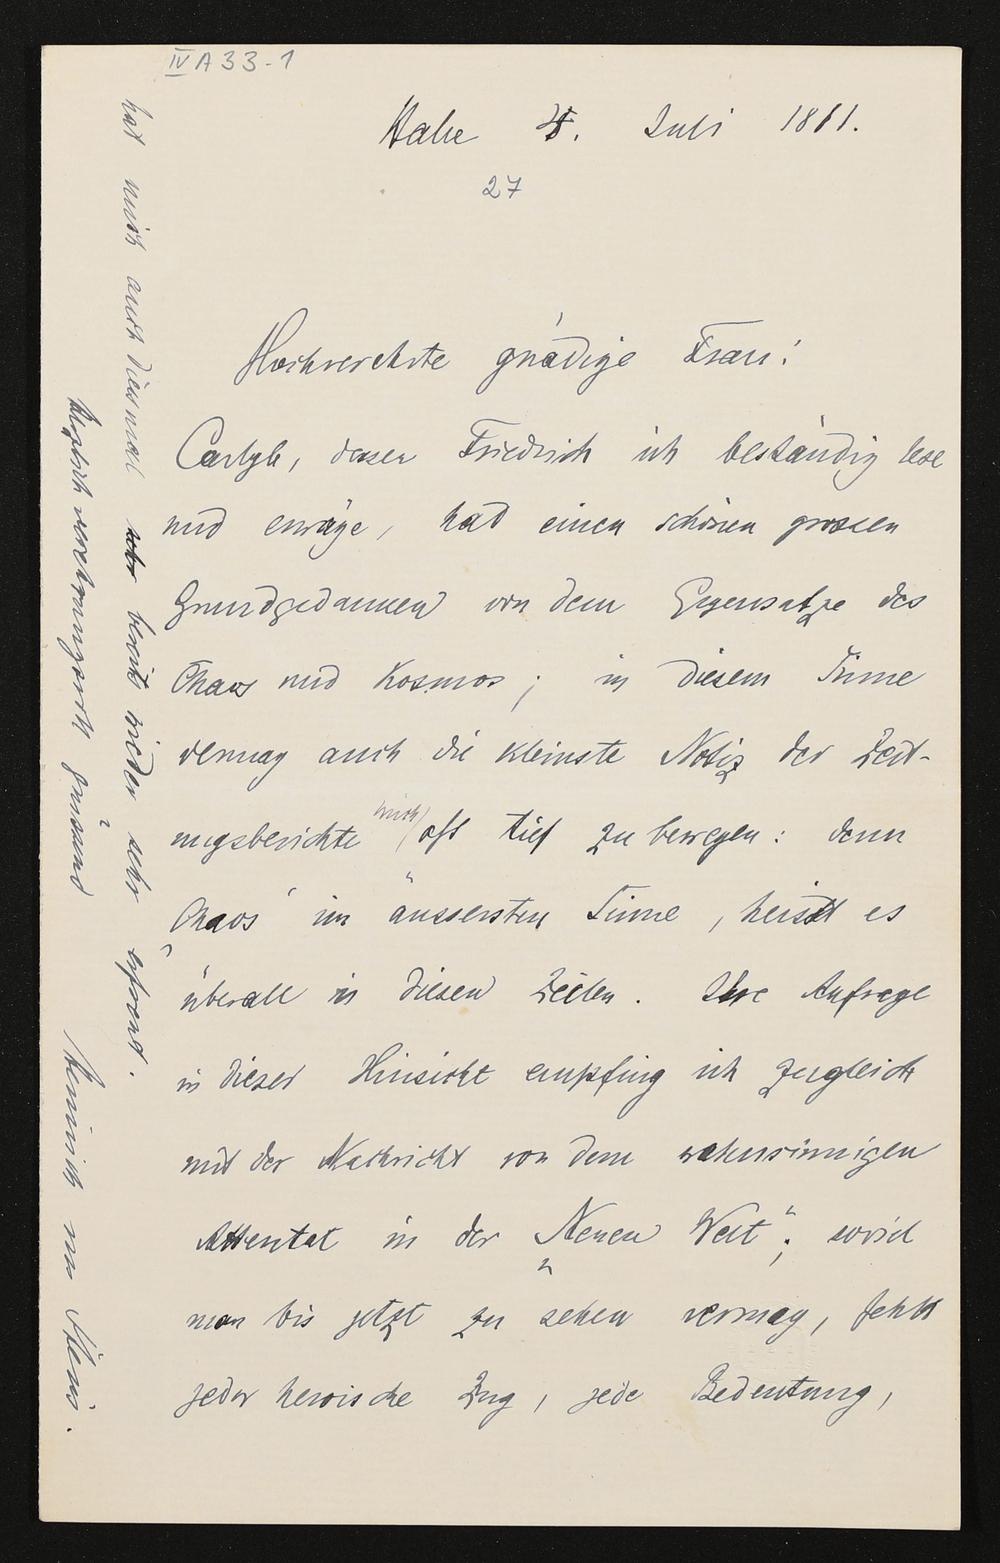 IV A 33-1
Halle 4. Juli 1881.
27
Hochverehrte gnädige Frau!
Carlyle, dessen Friedrich ich beständig lese
und erwäge, hat einen schönen grossen
Grundgedanken von dem Gegensatze des
Chaos und Kosmos; in diesem Sinne
vermag auch die kleinste Notiz der Zeit-
ungsberichte mich oft tief zu bewegen: denn
„Chaos“ im äussersten Sinne, heisst es
überall in diesen Zeilen. Ihre Anfrage
in dieser Hinsicht empfing ich zugleich
mit der Nachricht von dem wahnsinnigen
Attentat in der „Neuen Welt“; soviel
man bis jetzt zu sehen vermag, fehlt
jeder heroische Zug, jede Bedeutung,
hat mich auch diesmal sehr bereits wieder sehr erfreut.
Herzlich verehrungsvoll grüssend
Heinrich von Stein.